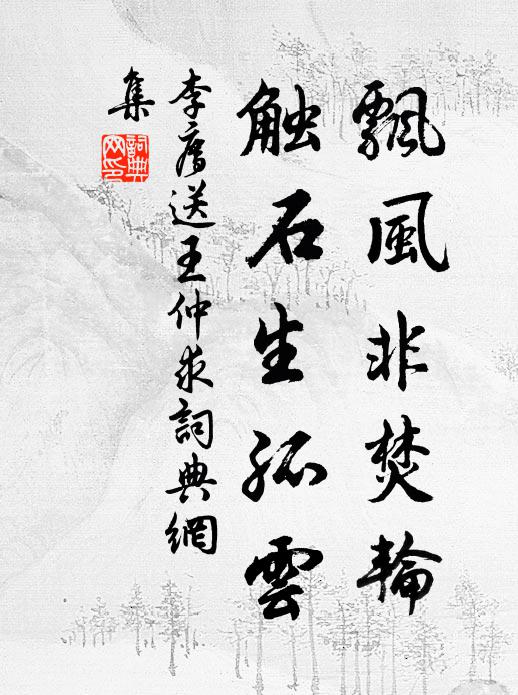 飄風非焚輪
触石生孤雲
李廌送王仲求詞典網
集
詞典
网印